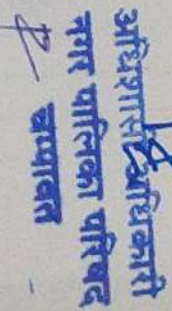 अधिशासी अधिकारी
नगर पालिका परिषद
चम्पावत